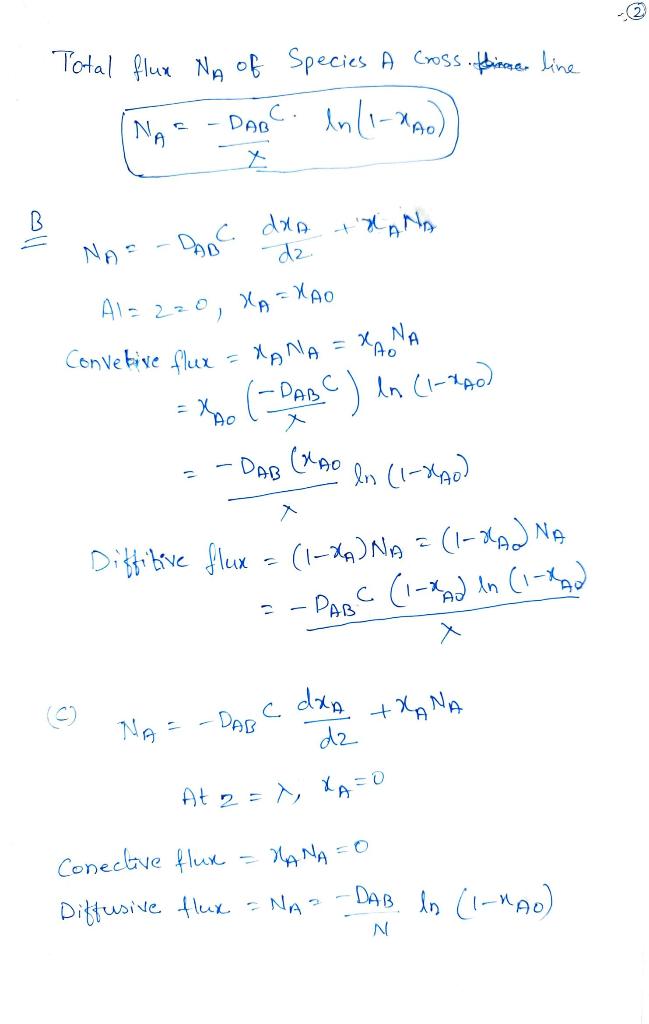 ②
Total flux N_A of Species A Cross line
N_A = - D_AB C. ln(1-x_A0) / x
B
N_A = - D_AB C dx_A/dz + x_A N_A
At = z=0, x_A = x_A0
Convetive flux = x_A N_A = x_A0 N_A
= x_A0 (-D_AB C / x) ln (1-x_A0)
= - D_AB C x_A0 / x ln (1-x_A0)
Diffitive flux = (1-x_A) N_A = (1-x_A0) N_A
= - D_AB C (1-x_A0) ln (1-x_A0) / x
(C) N_A = - D_AB C dx_A/dz + x_A N_A
At z = λ, x_A = 0
Conective flux = x_A N_A = 0
Diffusive flux = N_A = - D_AB / N ln (1-x_A0)